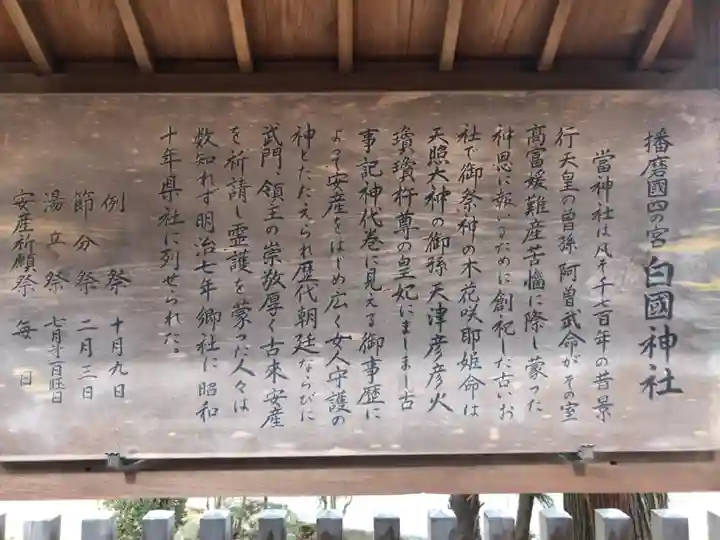 播磨國四の宮 白國神社
當神社は凡そ千七百年の昔景
行天皇の曽孫 阿曽武命がその室
高富媛難産苦悩に際し蒙った
神恩に報いるために創祀した古いお
社で御祭神の木花咲耶姫命は
天照大神の御孫 天津彦彦火
瓊瓊杵尊の皇妃にましまし古
事記神代巻に見える御事歴に
よって安産をはじめ広く女人守護の
神とたたえられ歴代朝廷ならびに
武門、領主の崇敬厚く古來安産
を祈請し霊護を蒙った人々は
数知れず明治七年郷社に昭和
十年県社に列せられた。
例祭 十月九日
節分祭 二月三日
湯立祭 七月
安産祈願祭 毎日